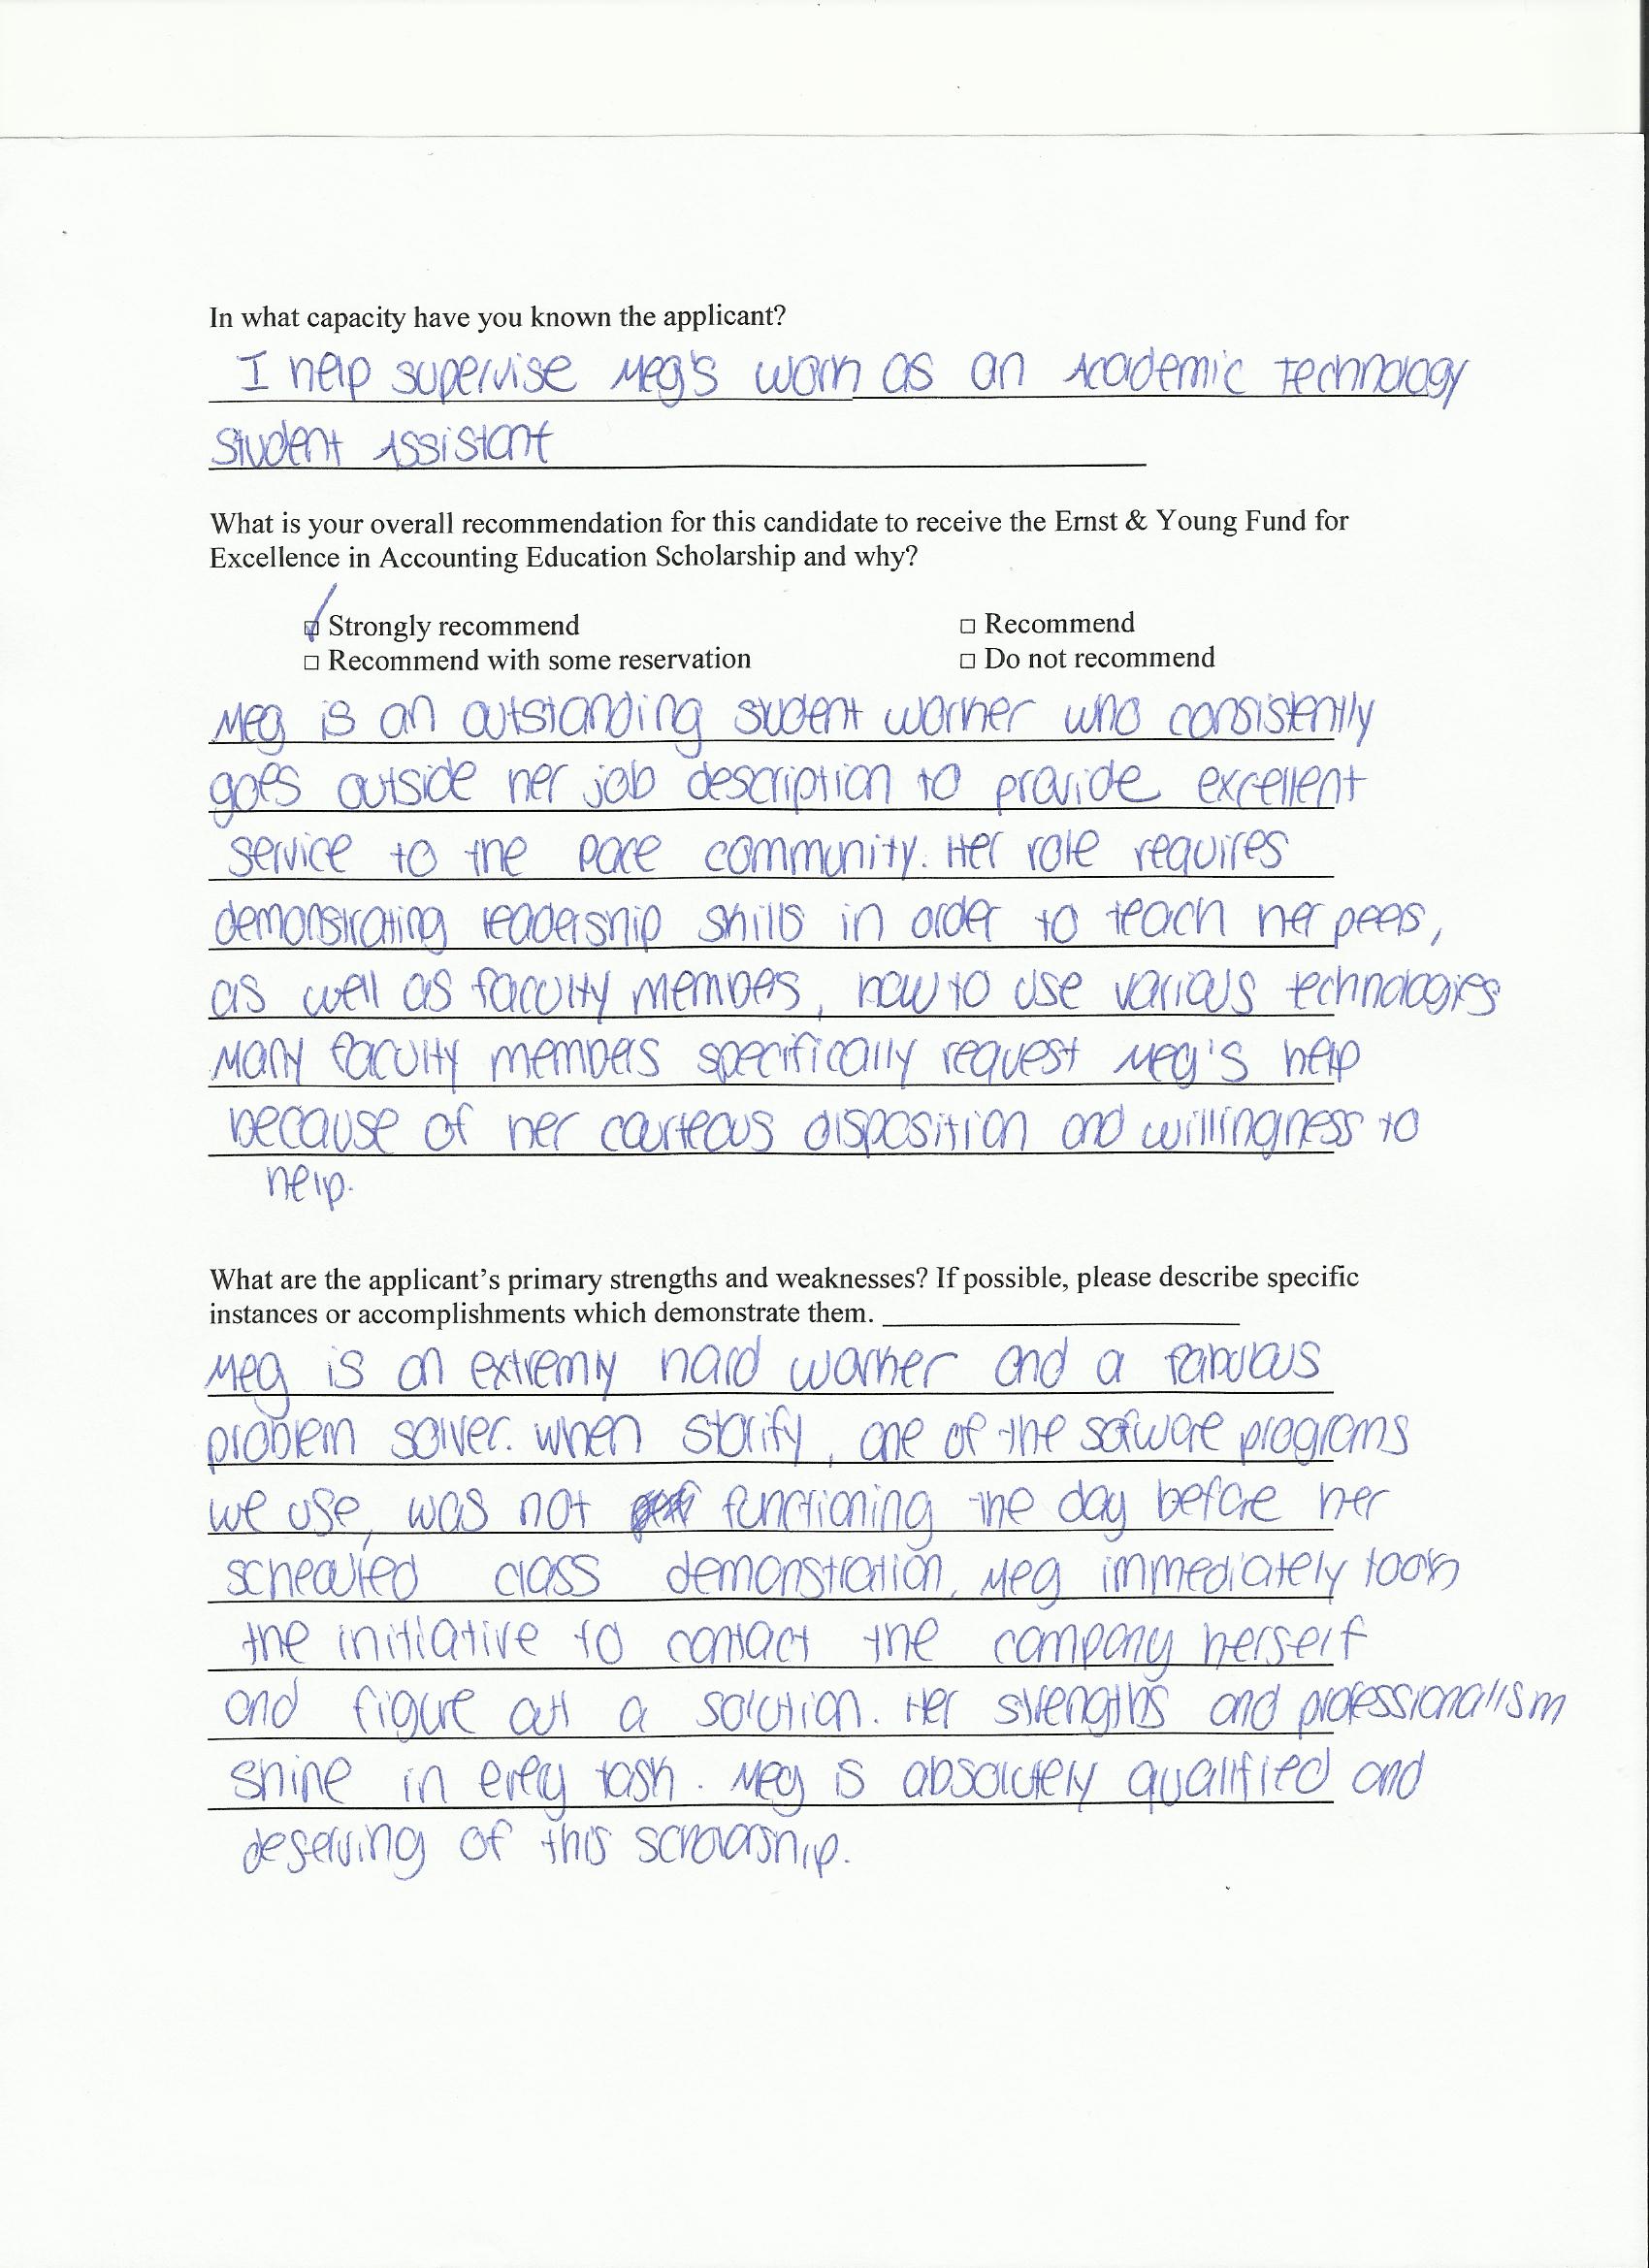 In what capacity have you known the applicant?
I help supervise Meg's work as an Academic Technology
Student Assistant
What is your overall recommendation for this candidate to receive the Ernst & Young Fund for
Excellence in Accounting Education Scholarship and why?
☑ Strongly recommend □ Recommend
□ Recommend with some reservation □ Do not recommend
Meg is an outstanding student worker who consistently
goes outside her job description to provide excellent
service to the Pace community. Her role requires
demonstrating leadership skills in order to teach her peers,
as well as faculty members, how to use various technologies
Many faculty members specifically request Meg's help
because of her courteous disposition and willingness to
help.
What are the applicant's primary strengths and weaknesses? If possible, please describe specific
instances or accomplishments which demonstrate them.
Meg is an extremly hard worker and a fabulous
problem solver. When Storify, one of the software programs
we use, was not functioning the day before her
scheduled class demonstration, Meg immediately took
the initiative to contact the company herself
and figure out a solution. Her strengths and professionalism
shine in every task. Meg is absolutely qualified and
deserving of this scholarship.